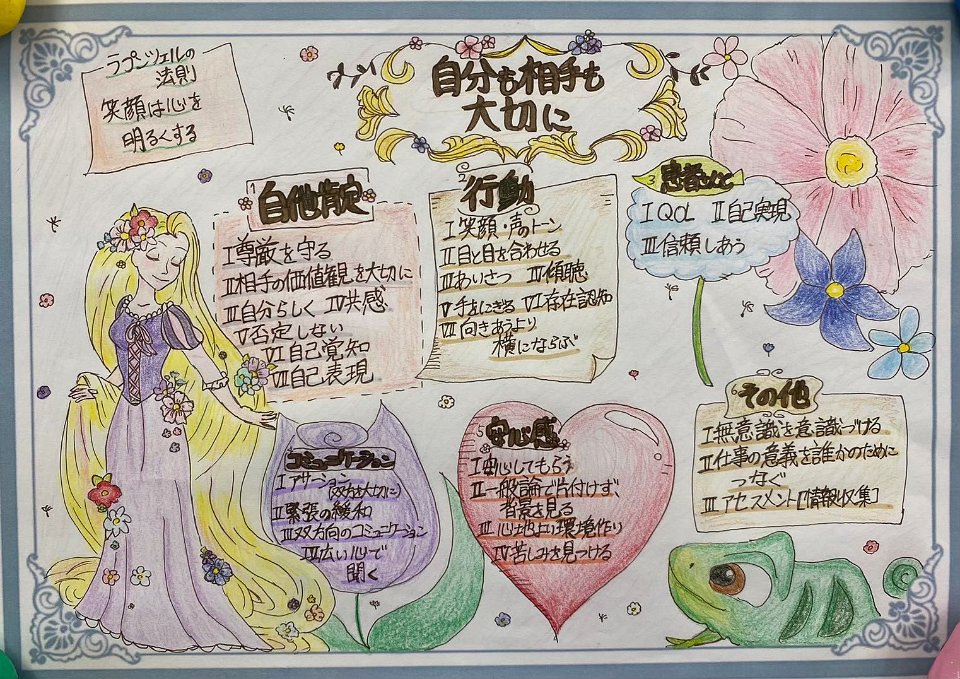 ラプンツェルの
法則
笑顔は心を
明るくする
自分も相手も
大切に
自他肯定
Ⅰ尊厳を守る
Ⅱ相手の価値観を大切に
Ⅲ自分らしく Ⅳ共感
Ⅴ否定しない
Ⅵ自己覚知
Ⅶ自己表現
2
行動
Ⅰ笑顔・声のトーン
Ⅱ目と目を合わせる
Ⅲあいさつ Ⅳ傾聴
Ⅴ手をにぎる Ⅵ存在認知
Ⅶ向きあうより
横にならぶ
3 患者さんと
ⅠQOL Ⅱ自己実現
Ⅲ信頼しあう
コミュニケーション
Ⅰアサーション
(双方を大切に)
Ⅱ緊張の緩和
Ⅲ双方向のコミュニケーション
Ⅳ広い心で
聞く
5 安心感
Ⅰ安心してもらう
Ⅱ一般論で片付けず、
背景を見る
Ⅲ心地よい環境作り
Ⅳ苦しみを見つける
その他
Ⅰ無意識を意識づける
Ⅱ仕事の意義を誰かのために
つなぐ
Ⅲアセスメント[情報収集]